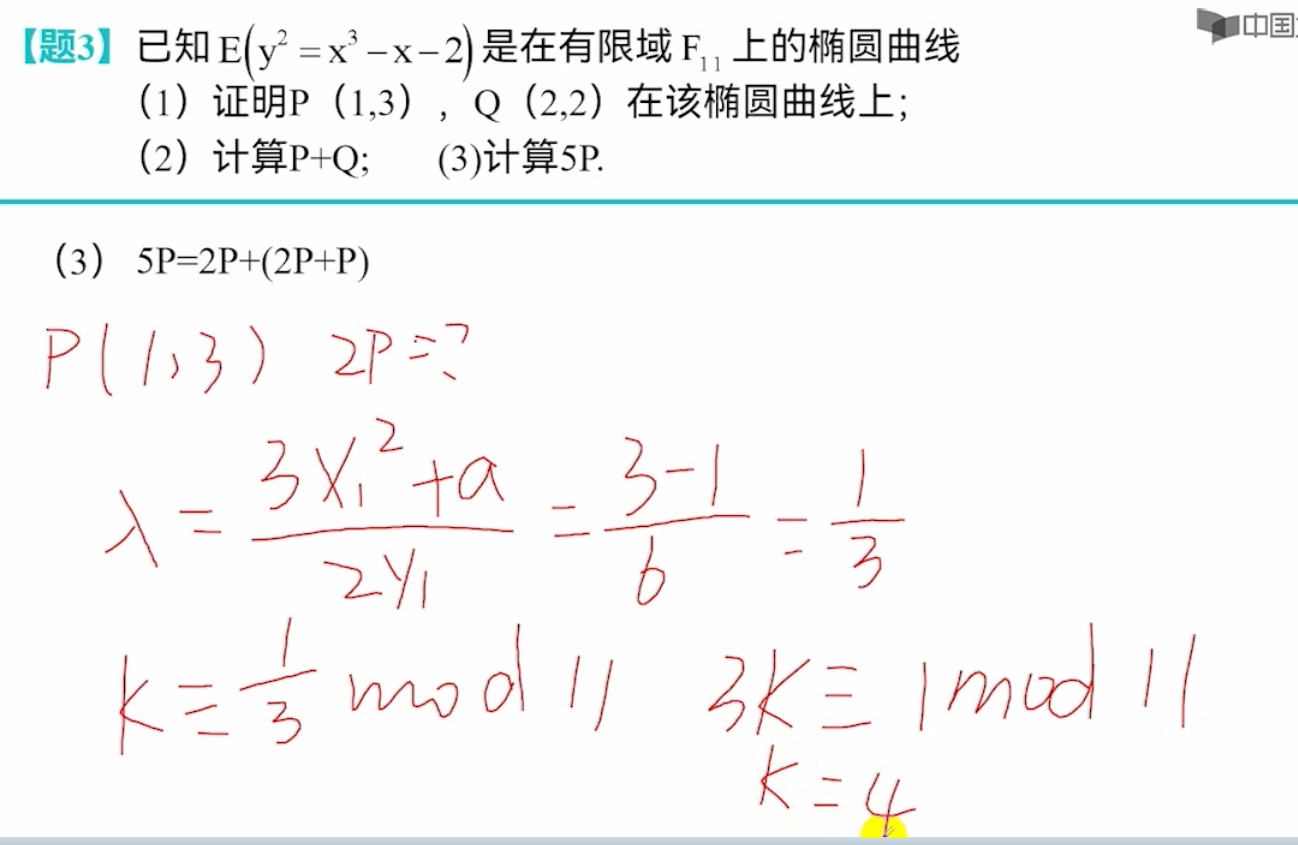 中国
【题3】已知 E(y² = x³ − x − 2) 是在有限域 F₁₁ 上的椭圆曲线
（1）证明P（1,3），Q（2,2）在该椭圆曲线上；
（2）计算P+Q; (3)计算5P.
（3） 5P=2P+(2P+P)
P(1,3) 2P=?
λ = (3x₁² + a)/(2y₁) = (3−1)/6 = 1/3
k ≡ 1/3 mod 11 3k ≡ 1 mod 11
k = 4